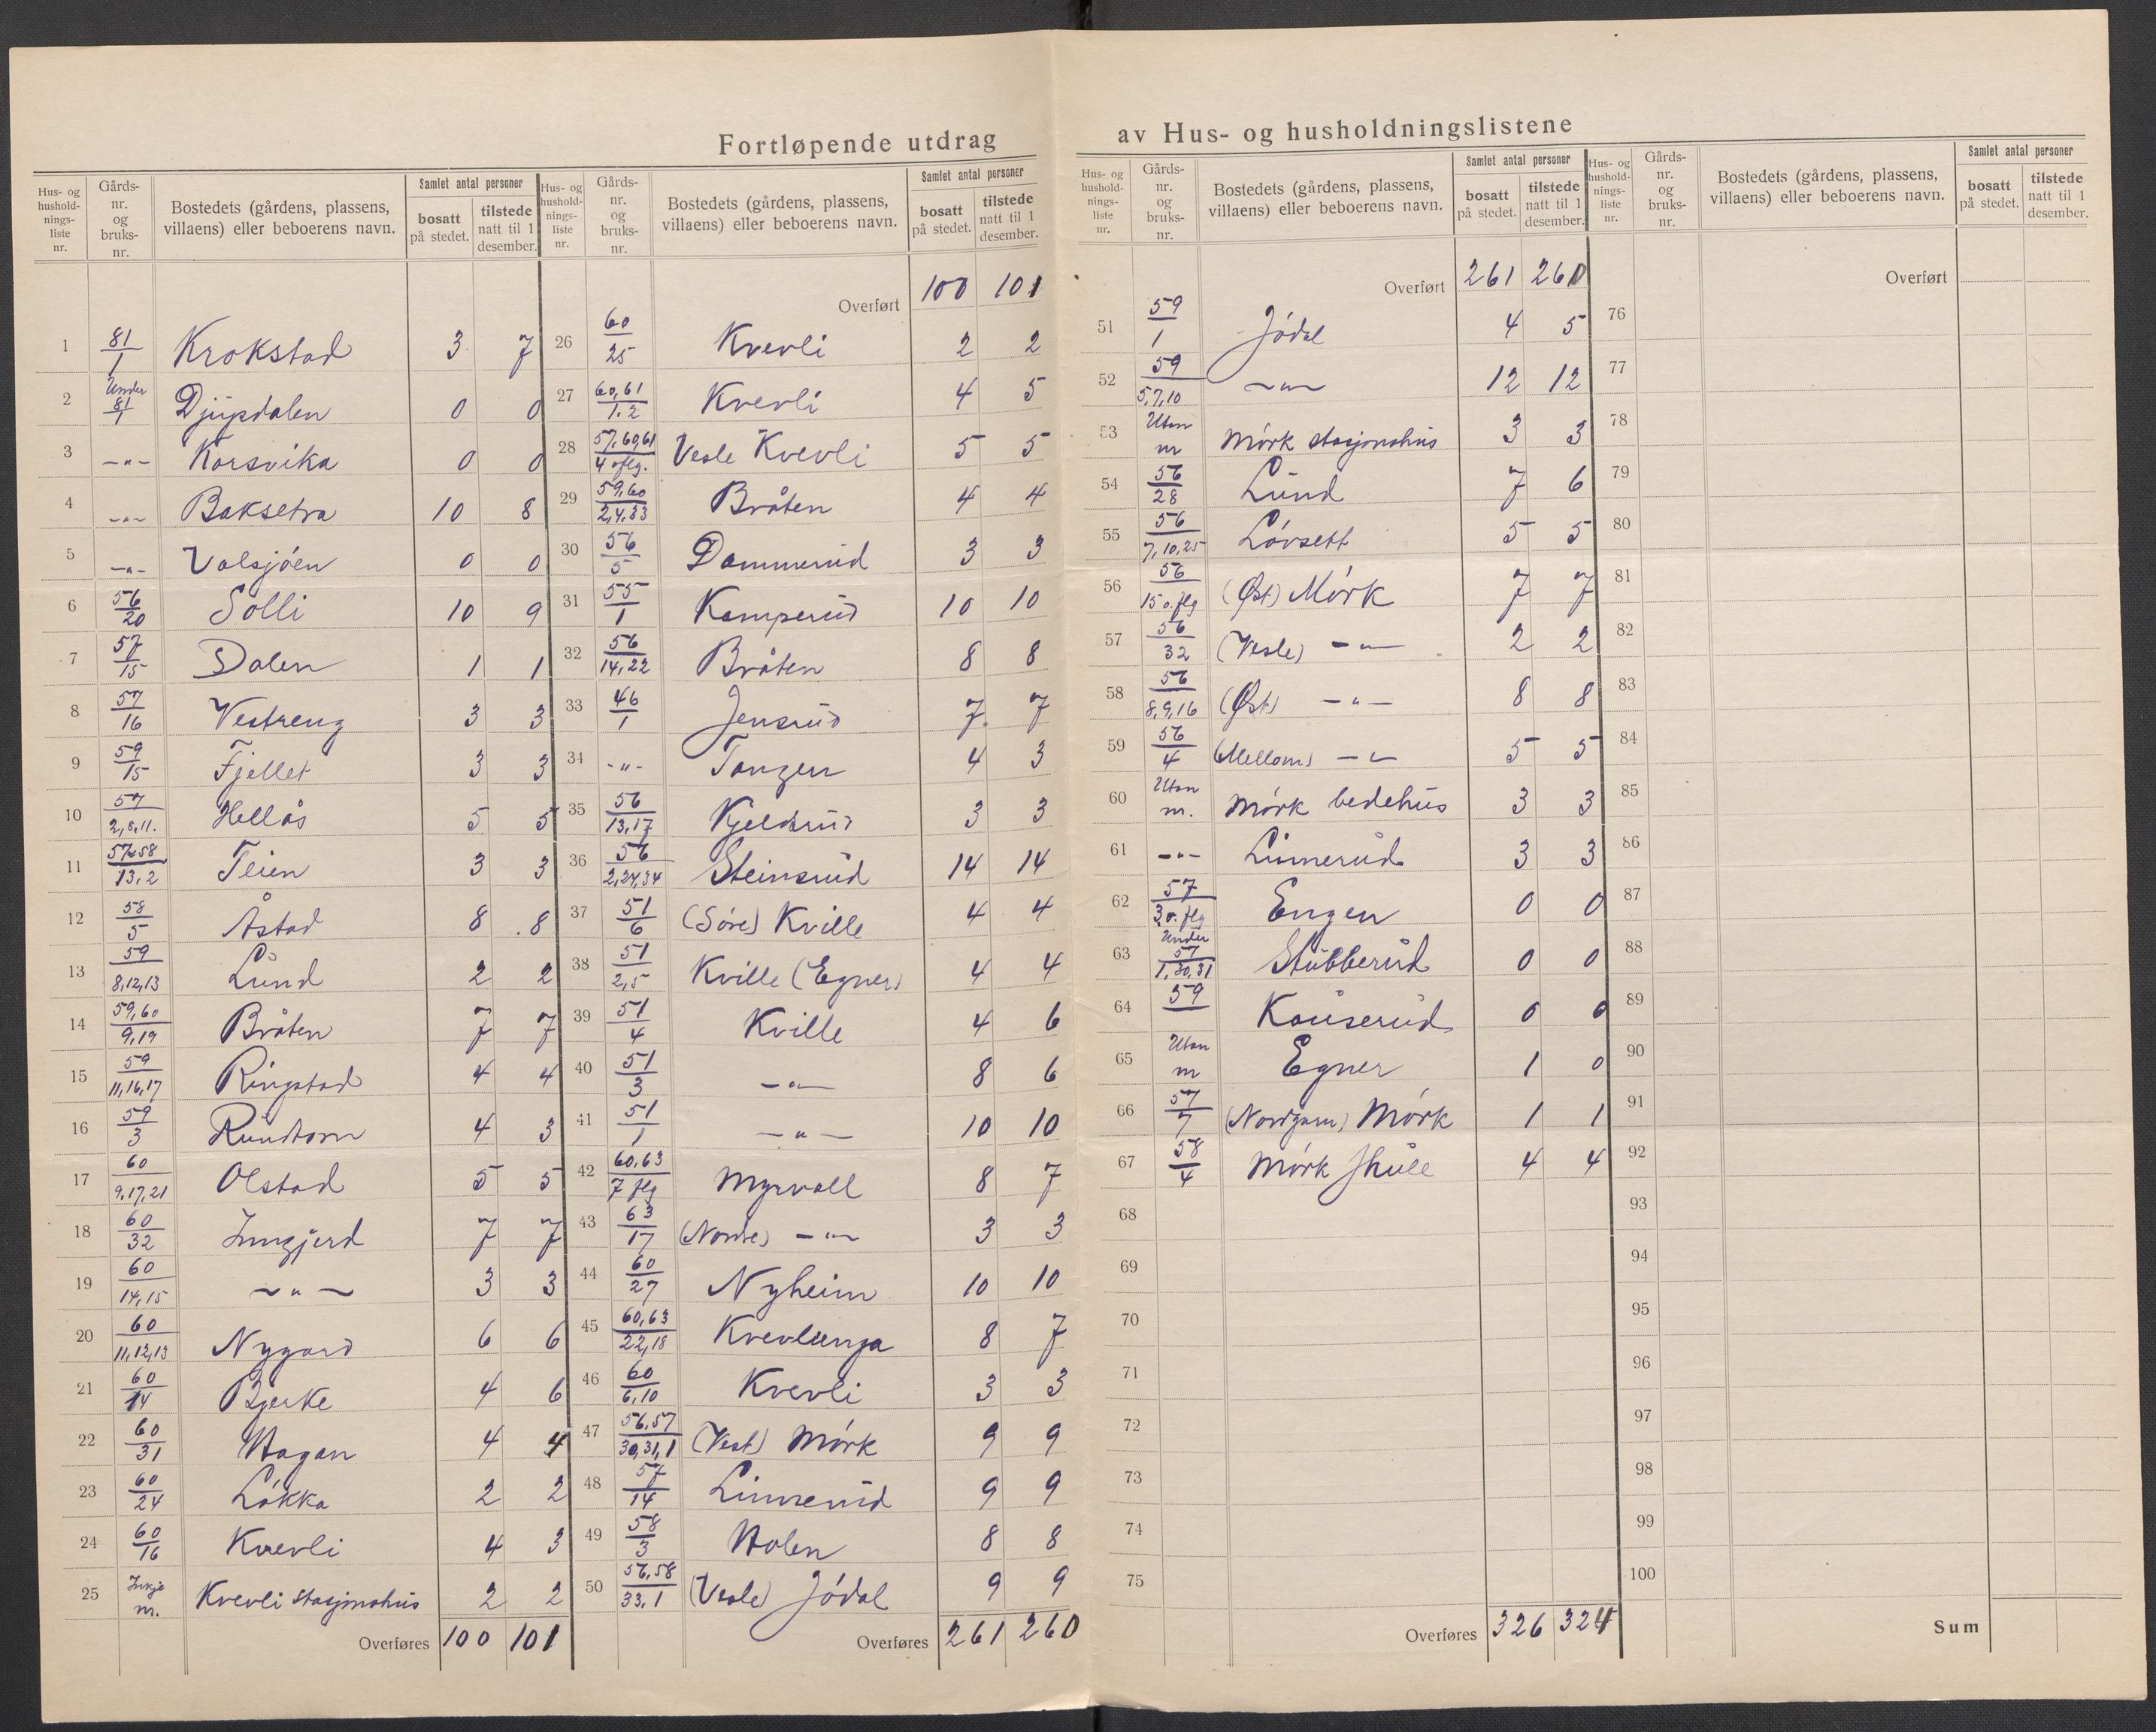 Fortløpende utdrag av Hus- og husholdningslistene
Hus- og hushold-nings-liste nr. | Gårds-nr. og bruks-nr. | Bostedets (gårdens, plassens, villaens) eller beboerens navn. | Samlet antal personer | bosatt på stedet. | tilstede natt til 1 desember.
1 | 81/1 | Krokstad | 3 | 7
2 | Under 81/1 | Djupdalen | 0 | 0
3 | -"- | Korsvika | 0 | 0
4 | -"- | Baksetra | 10 | 8
5 | -"- | Valsjöen | 0 | 0
6 | 56/20 | Solli | 10 | 9
7 | 57/15 | Dalen | 1 | 1
8 | 57/16 | Vestreng | 3 | 3
9 | 59/15 | Fjellet | 3 | 3
10 | 57/2,8,11. | Hellås | 5 | 5
11 | 57-58/13,2 | Teien | 3 | 3
12 | 58/5 | Åstad | 8 | 8
13 | 59/8,12,13 | Lund | 2 | 2
14 | 59,60/9,19 | Bråten | 7 | 7
15 | 59/11,16,17 | Ringstad | 4 | 4
16 | 59/3 | Rundtom | 4 | 3
17 | 60/9,17,21 | Olstad | 5 | 5
18 | 60/32 | Inngjerd | 7 | 7
19 | 60/14,15 | -"- | 3 | 3
20 | 60/11,12,13 | Nygard | 6 | 6
21 | 60/14 | Bjerke | 4 | 6
22 | 60/31 | Hagan | 4 | 4
23 | 60/24 | Løkka | 2 | 2
24 | 60/16 | Kvevli | 4 | 3
25 | Inkje m. | Kvevli stasjonshus | 2 | 2
Overføres 100 | 101
Hus- og hushold-nings-liste nr. | Gårds-nr. og bruks-nr. | Bostedets (gårdens, plassens, villaens) eller beboerens navn. | Samlet antal personer | bosatt på stedet. | tilstede natt til 1 desember.
Overført 100 | 101
26 | 60/25 | Kvevli | 2 | 2
27 | 60,61/1.2 | Kvevli | 4 | 5
28 | 57,60,61/4 oflg. | Vesle Kvevli | 5 | 5
29 | 59,60/2,4,33 | Bråten | 4 | 4
30 | 56/5 | Dammerud | 3 | 3
31 | 55/1 | Kamperud | 10 | 10
32 | 56/14,22 | Bråten | 8 | 8
33 | 46/1 | Jensrud | 7 | 7
34 | -"- | Tangen | 4 | 3
35 | 56/13,17 | Kjeldsrud | 3 | 3
36 | 56/2,24,34 | Steinsrud | 14 | 14
37 | 51/6 | (Söre) Kville | 4 | 4
38 | 51/2,5 | Kville (Egner) | 4 | 4
39 | 51/4 | Kville | 4 | 6
40 | 51/3 | -"- | 8 | 6
41 | 51/1 | -"- | 10 | 10
42 | 60,63/7 flg | Myrvoll | 8 | 7
43 | 63/17 | (Nordre) -"- | 3 | 3
44 | 60/27 | Nyheim | 10 | 10
45 | 60,63/22,18 | Kvevlienga | 8 | 7
46 | 60/6,10 | Kvevli | 3 | 3
47 | 56,57/30,31,1 | (Vest) Mörk | 9 | 9
48 | 57/14 | Linnerud | 9 | 9
49 | 58/3 | Holen | 8 | 8
50 | 56,58/33,1 | (Vesle) Jödal | 9 | 9
Overføres 261 | 260
Hus- og hushold-nings-liste nr. | Gårds-nr. og bruks-nr. | Bostedets (gårdens, plassens, villaens) eller beboerens navn. | Samlet antal personer | bosatt på stedet. | tilstede natt til 1 desember.
Overført 261 | 260
51 | 59/1 | Jödal | 4 | 5
52 | 59/5,7,10 | -"- | 12 | 12
53 | Utan m | Mörk stasjonshus | 3 | 3
54 | 56/28 | Lund | 7 | 6
55 | 56/7,10,25 | Lövsett | 5 | 5
56 | 56/15 o.flg | (Øst) Mörk | 7 | 7
57 | 56/32 | (Vesle) -"- | 2 | 2
58 | 56/8,9,16 | (Øst) -"- | 8 | 8
59 | 56/4 | (Mellom) -"- | 5 | 5
60 | Utan m. | Mörk bedehus | 3 | 3
61 | -"- | Linnerud | 3 | 3
62 | 57/3 o. flg | Engen | 0 | 0
63 | Under 57/1,30,31 | Stubberud | 0 | 0
64 | 59 | Kauserud | 0 | 0
65 | Utan m | Egner | 1 | 0
66 | 57/7 | (Nordgarn) Mörk | 1 | 1
67 | 58/4 | Mörk skule | 4 | 4
68
69
70
71
72
73
74
75
Overføres 326 | 324
Hus- og hushold-nings-liste nr. | Gårds-nr. og bruks-nr. | Bostedets (gårdens, plassens, villaens) eller beboerens navn. | Samlet antal personer | bosatt på stedet. | tilstede natt til 1 desember.
Overført
76
77
78
79
80
81
82
83
84
85
86
87
88
89
90
91
92
93
94
95
96
97
98
99
100
Sum